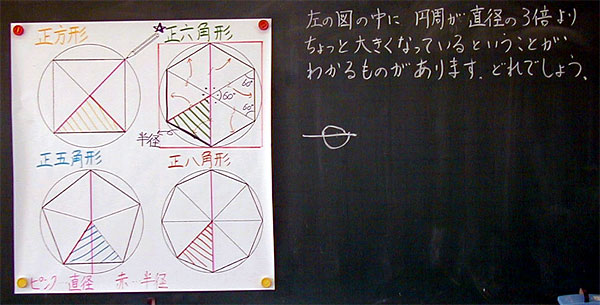 正方形
正六角形
60°
60°
60°
半径
正五角形
正八角形
ピンク 直径 赤…半径
左の図の中に 円周が直径の3倍より
ちょっと大きくなっているということが
わかるものがあります. どれでしょう.